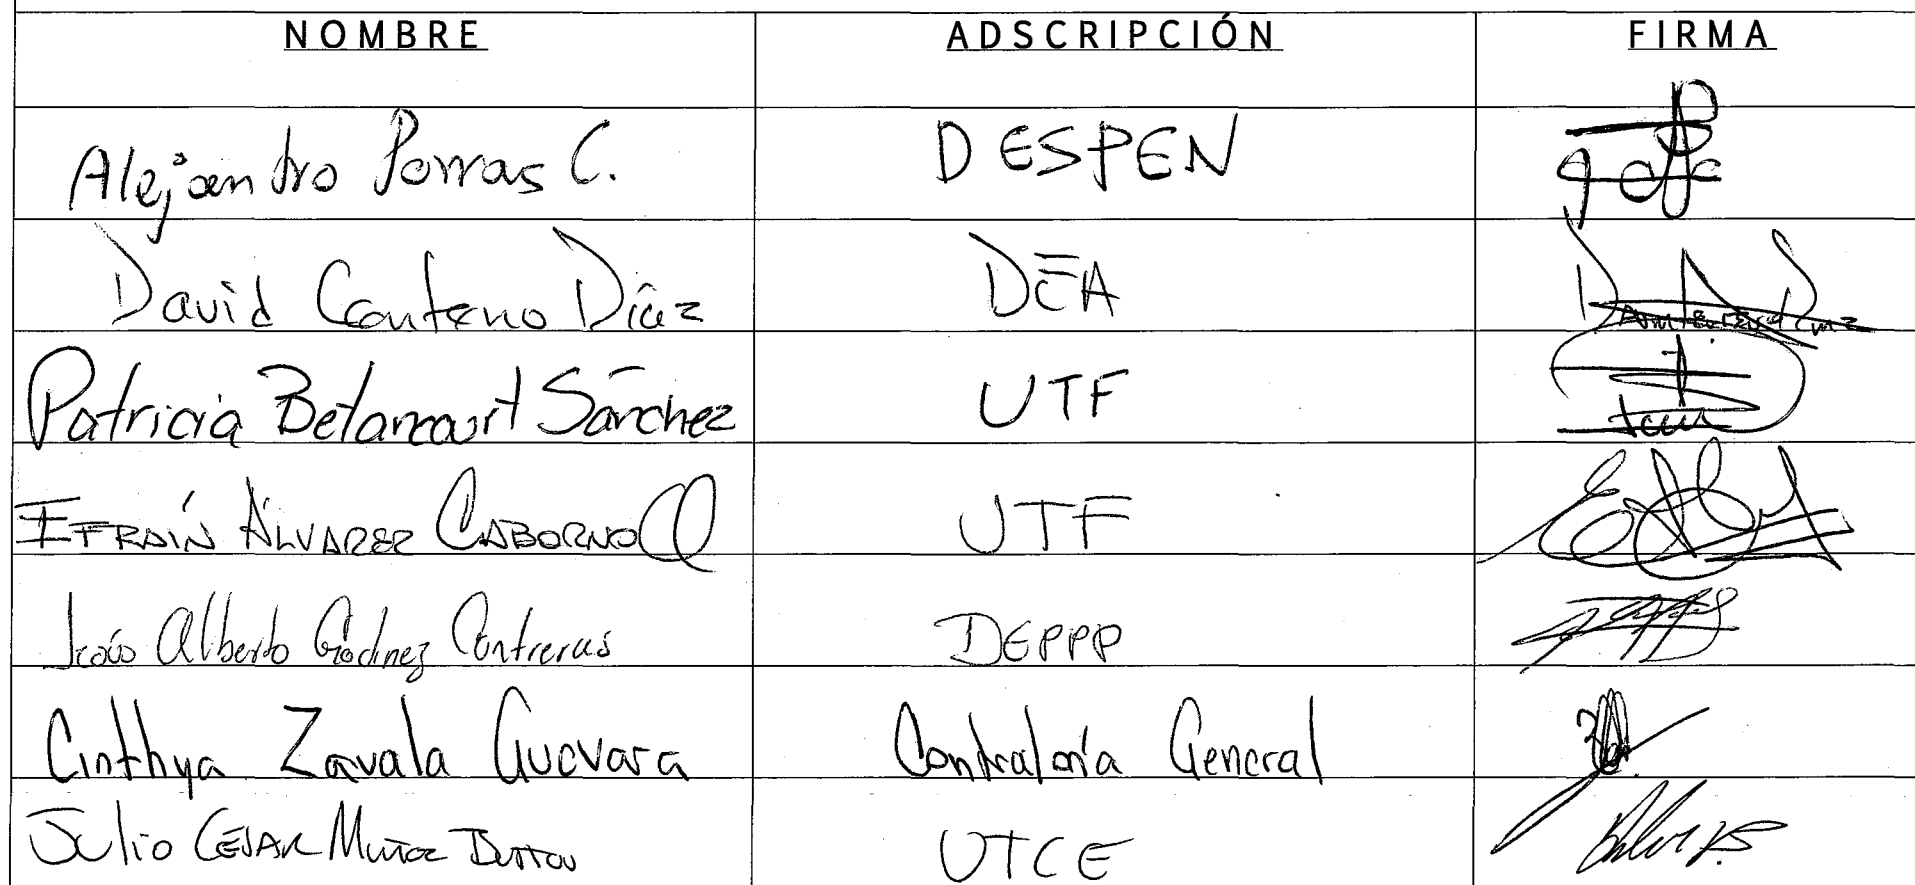 NOMBRE ADSCRIPCIÓN FIRMA
Alejandro Porras C. DESPEN
David Centeno Díaz DEA
Patricia Betancourt Sánchez UTF
EFRAÍN ÁLVAREZ UTF
Jesús Alberto Godínez Contreras DEPPP
Cinthya Zavala Guevara Contraloría General
Julio CESAR Muñoz UTCE